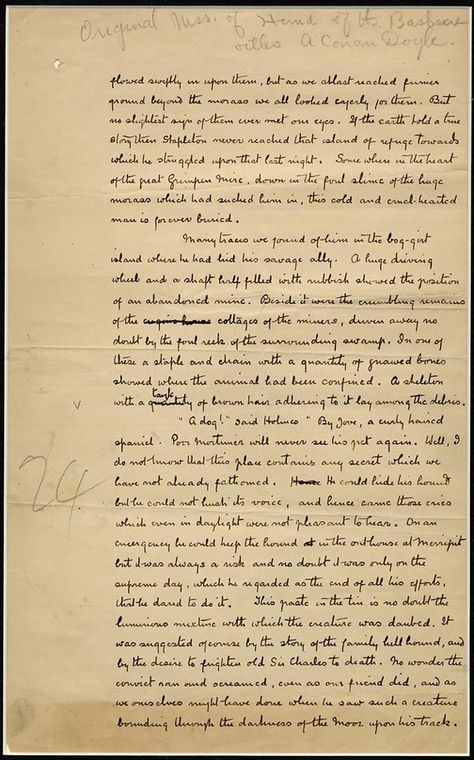 Original Mss. of Hound of the Basker
villes A Conan Doyle.
flowed swiftly in upon them, but as we at last reached firmer
ground beyond the morass we all looked eagerly for them. But
no slightest sign of them ever met our eyes. If the earth told a true
story then Stapleton never reached that island of refuge towards
which he struggled upon that last night. Some where in the heart
of the great Grimpen Mire, down in the foul slime of the huge
morass which had sucked him in, this cold and cruel-hearted
man is forever buried.
Many traces we found of him in the bog-girt
island where he had hid his savage ally. A huge driving
wheel and a shaft half filled with rubbish showed the position
of an abandoned mine. Beside it were the crumbling remains
of the engine house cottages of the miners, driven away no
doubt by the foul reek of the surrounding swamp. In one of
these a staple and chain with a quantity of gnawed bones
showed where the animal had been confined. A skeleton
with a quantity tangle of brown hair adhering to it lay among the debris.
v
"A dog!" said Holmes "By Jove, a curly haired
spaniel. Poor Mortimer will never see his pet again. Well, I
do not know that this place contains any secret which we
24
have not already fathomed. Hence He could hide his hound
but he could not hush its voice, and hence came those cries
which even in daylight were not pleasant to hear. On an
emergency he could keep the hound at in the out house at Merripit
but it was always a risk and no doubt it was only on the
supreme day, which he regarded as the end of all his efforts,
that he dared to do it. This paste in the tin is no doubt the
luminous mixture with which the creature was daubed. It
was suggested of course by the story of the family hell hound, and
by the desire to frighten old Sir Charles to death. No wonder the
convict ran and screamed, even as our friend did, and as
we ourselves might have done when he saw such a creature
bounding through the darkness of the Moor upon his track.